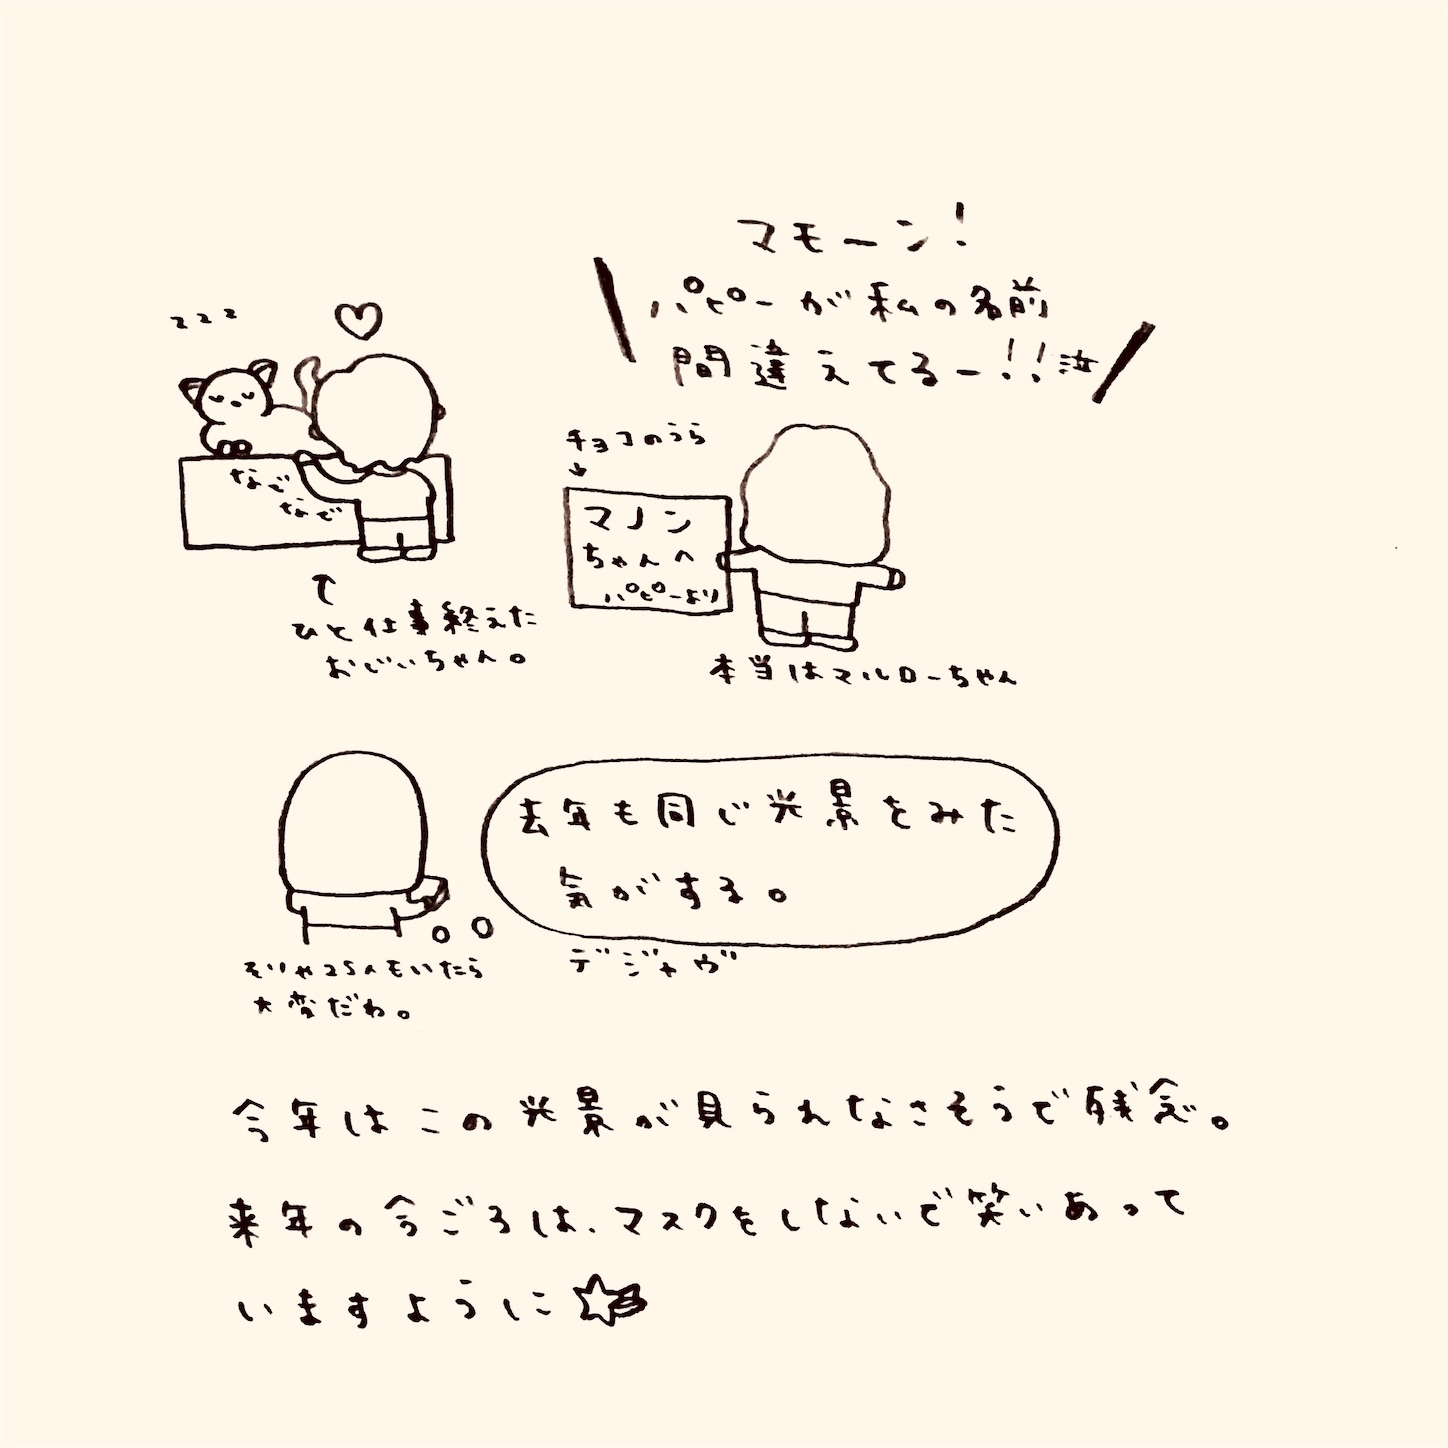 マモーン!
パピーが私の名前
間違えてるー!!泣
zzz
なで
なで
↑
ひと仕事終えた
おじいちゃん。
チョコのうら
↓
マノン
ちゃんへ
パピーより
本当はマルローちゃん
去年も同じ光景をみた
気がする。
デジャヴ
そりゃ25人もいたら
大変だわ。
今年はこの光景が見られなさそうで残念。
来年の今ごろは、マスクをしないで笑いあって
いますように